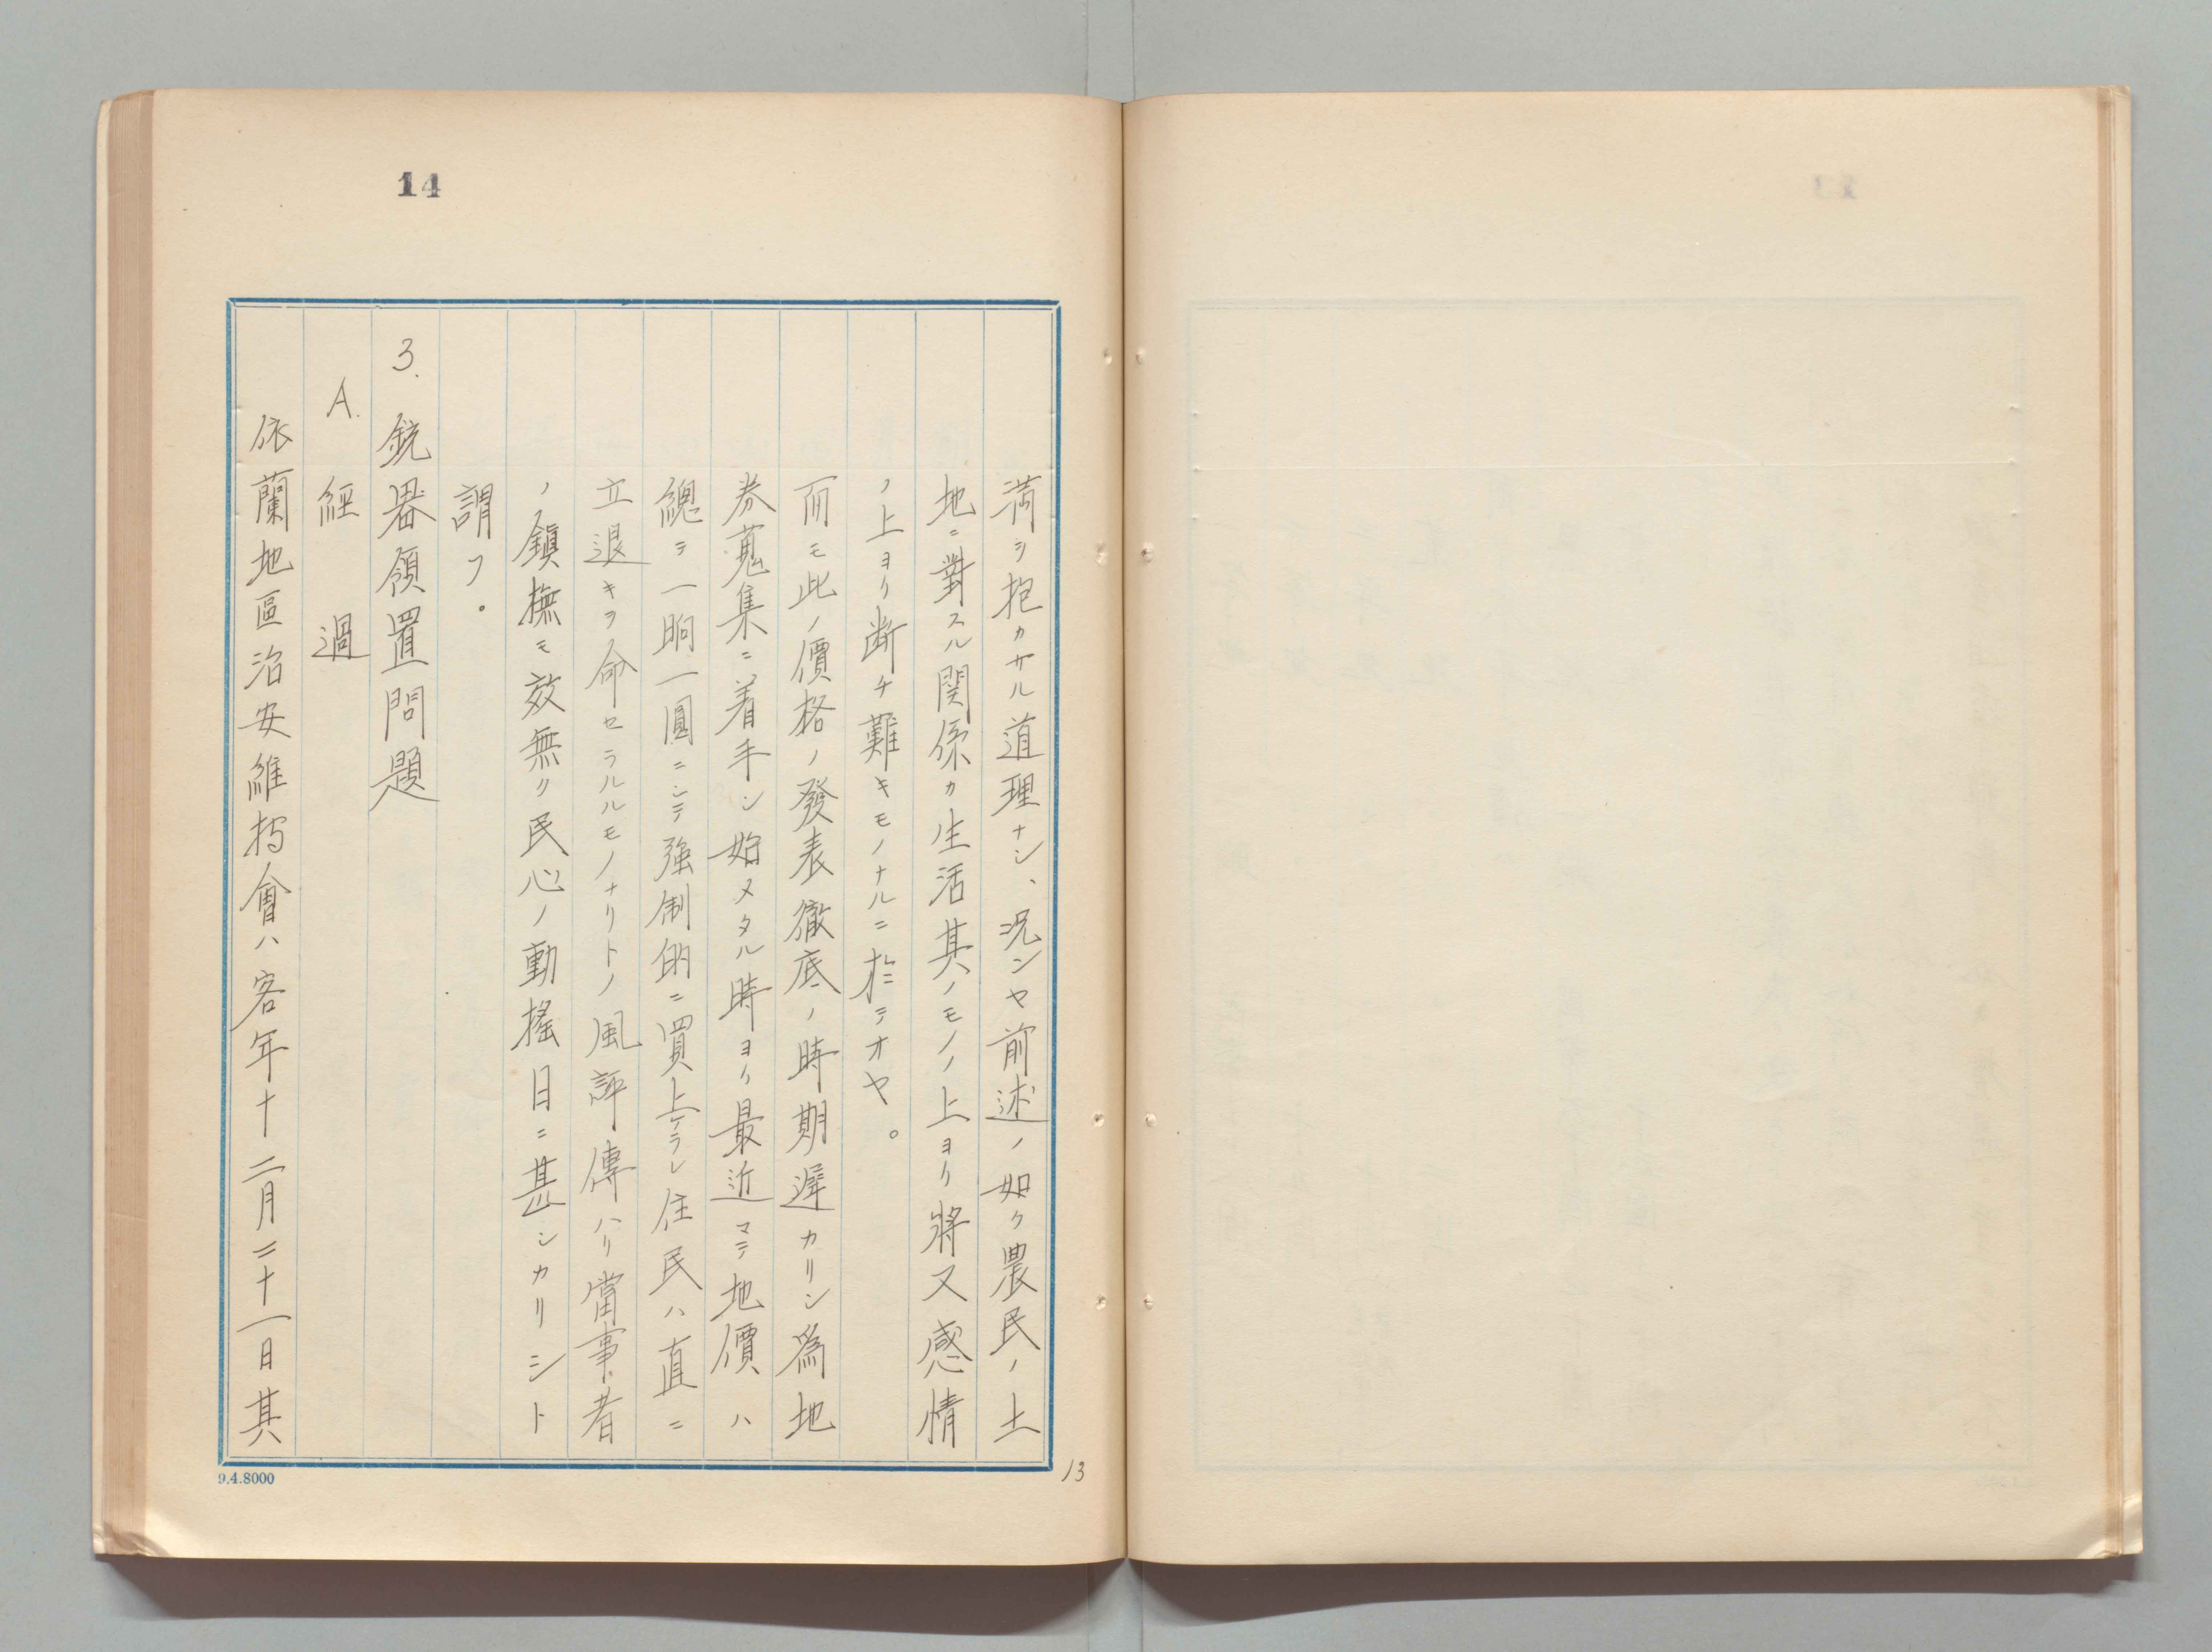 14
満ヲ抱カサル道理ナシ、況ンヤ前述ノ如ク農民ノ土
地ニ對スル関係カ生活其ノモノノ上ヨリ將又感情
ノ上ヨリ断チ難キモノナルニ於テオヤ。
而モ此ノ價格ノ發表徹底ノ時期遅カリシ為地
券蒐集ニ着手シ始メタル時ヨリ最近マテ地價ハ
總テ一晌一圓ニシテ強制的ニ買上ケラレ住民ハ直ニ
立退キヲ命セラルルモノナリトノ風評傳ハリ當事者
ノ鎭撫モ效無ク民心ノ動搖日ニ甚シカリシト
謂フ。
3. 銃器領置問題
A. 經過
依蘭地區治安維持會ハ客年十二月二十一日其
13
9.4.8000